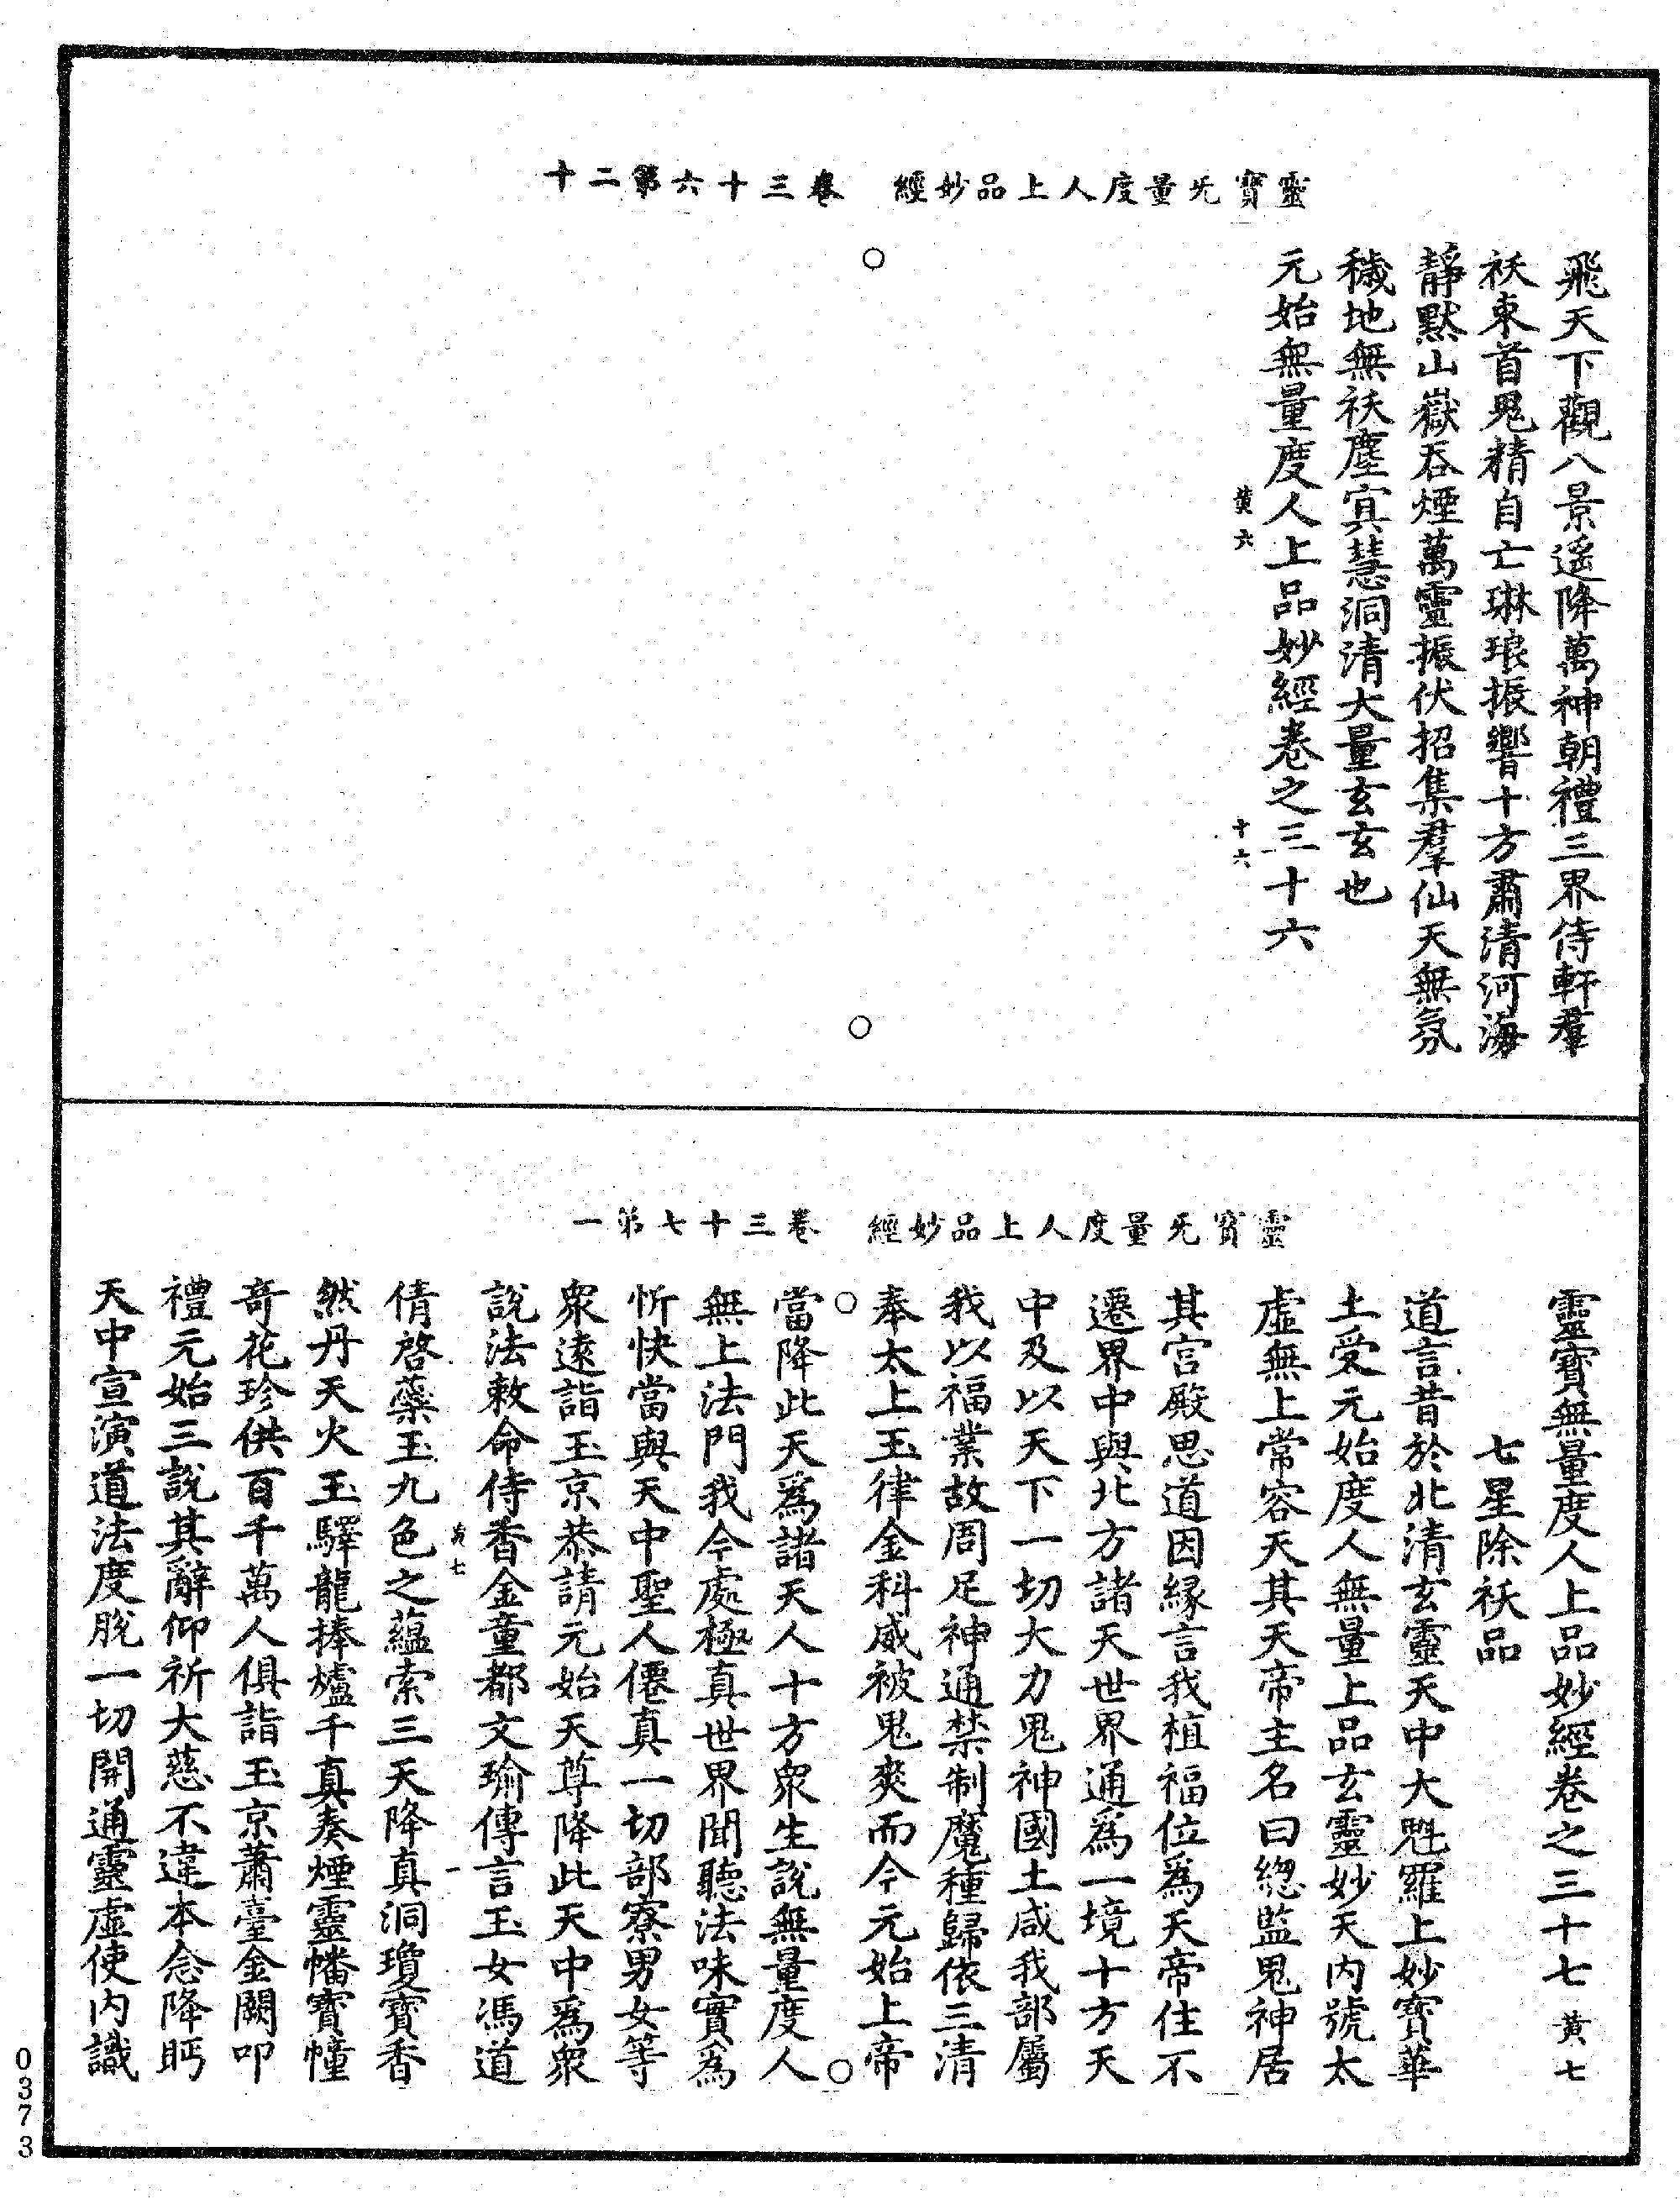 靈寶旡量度人上品妙經　卷三十六第二十
飛天下觀八景遥降萬神朝禮三界侍軒羣
祅束首鬼精自亡琳琅振響十方肅清河海
靜默山嶽吞煙萬靈振伏招集羣仙天無氛
穢地無祅塵冥慧洞清大量玄玄也
元始無量度人上品妙經卷之三十六
黄六　十六
靈寶旡量度人上品妙經　卷三十七第一
靈寶無量度人上品妙經卷之三十七　黄七
七星除祅品
道言昔於北清玄靈天中大魁羅上妙寶華
土受元始度人無量上品玄靈妙天内號太
虛無上常容天其天帝主名曰總監鬼神居
其宮殿思道因緣言我植福位爲天帝住不
遷界中與北方諸天世界通爲一境十方天
中及以天下一切大力鬼神國土咸我部屬
我以福業故周足神通禁制魔種歸依三清
奉太上玉律金科威被鬼爽而今元始上帝
當降此天爲諸天人十方衆生說無量度人
無上法門我今處極真世界聞聽法味實爲
忻快當與天中聖人僊真一切部寮男女等
衆遠詣玉京恭請元始天尊降此天中爲衆
說法敕命侍香金童都文瑜傳言玉女馮道
黄七　一
倩啓蘂玉九色之蘊索三天降真洞瓊寶香
然丹天火玉驛龍捧爐千真奏煙靈幡寶幢
奇花珍供百千萬人俱詣玉京蕭臺金闕叩
禮元始三說其辭仰祈大慈不違本念降眄
天中宣演道法度脫一切開通靈虛使内識
0373